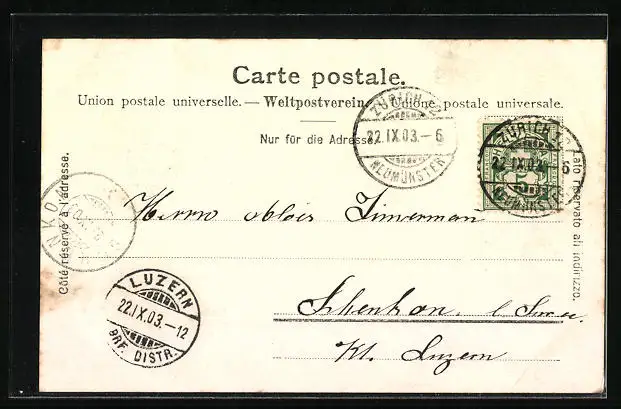 Carte postale.
Union postale universelle. — Weltpostverein. — Unione postale universale.
Nur für die Adresse.
Côté réservé à l'adresse.
Lato riservato all' indirizzo.
ZÜRICH
22.IX.03.–6
NEUMÜNSTER
ZÜRICH
22.IX.03.–6
NEUMÜNSTER
Herrn Alois Zimerman
LUZERN
22.IX.03.–12
BRF. DISTR.
Schenkon, b. Sursee
Kt. Luzern